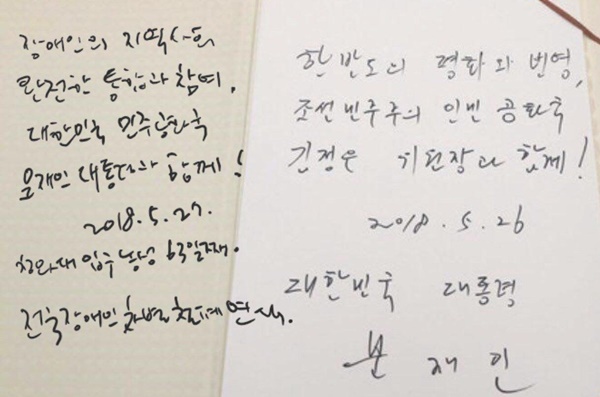 장애인의 지역사회
완전한 통합과 참여,
대한민국 민주공화국
문재인 대통령과 함께!
2018.5.27.
청와대 입구 농성 63일째.
전국장애인차별철폐연대.
한반도의 평화와 번영,
조선민주주의 인민 공화국
김정은 위원장과 함께!
2018. 5. 26
대한민국 대통령
문 재 인